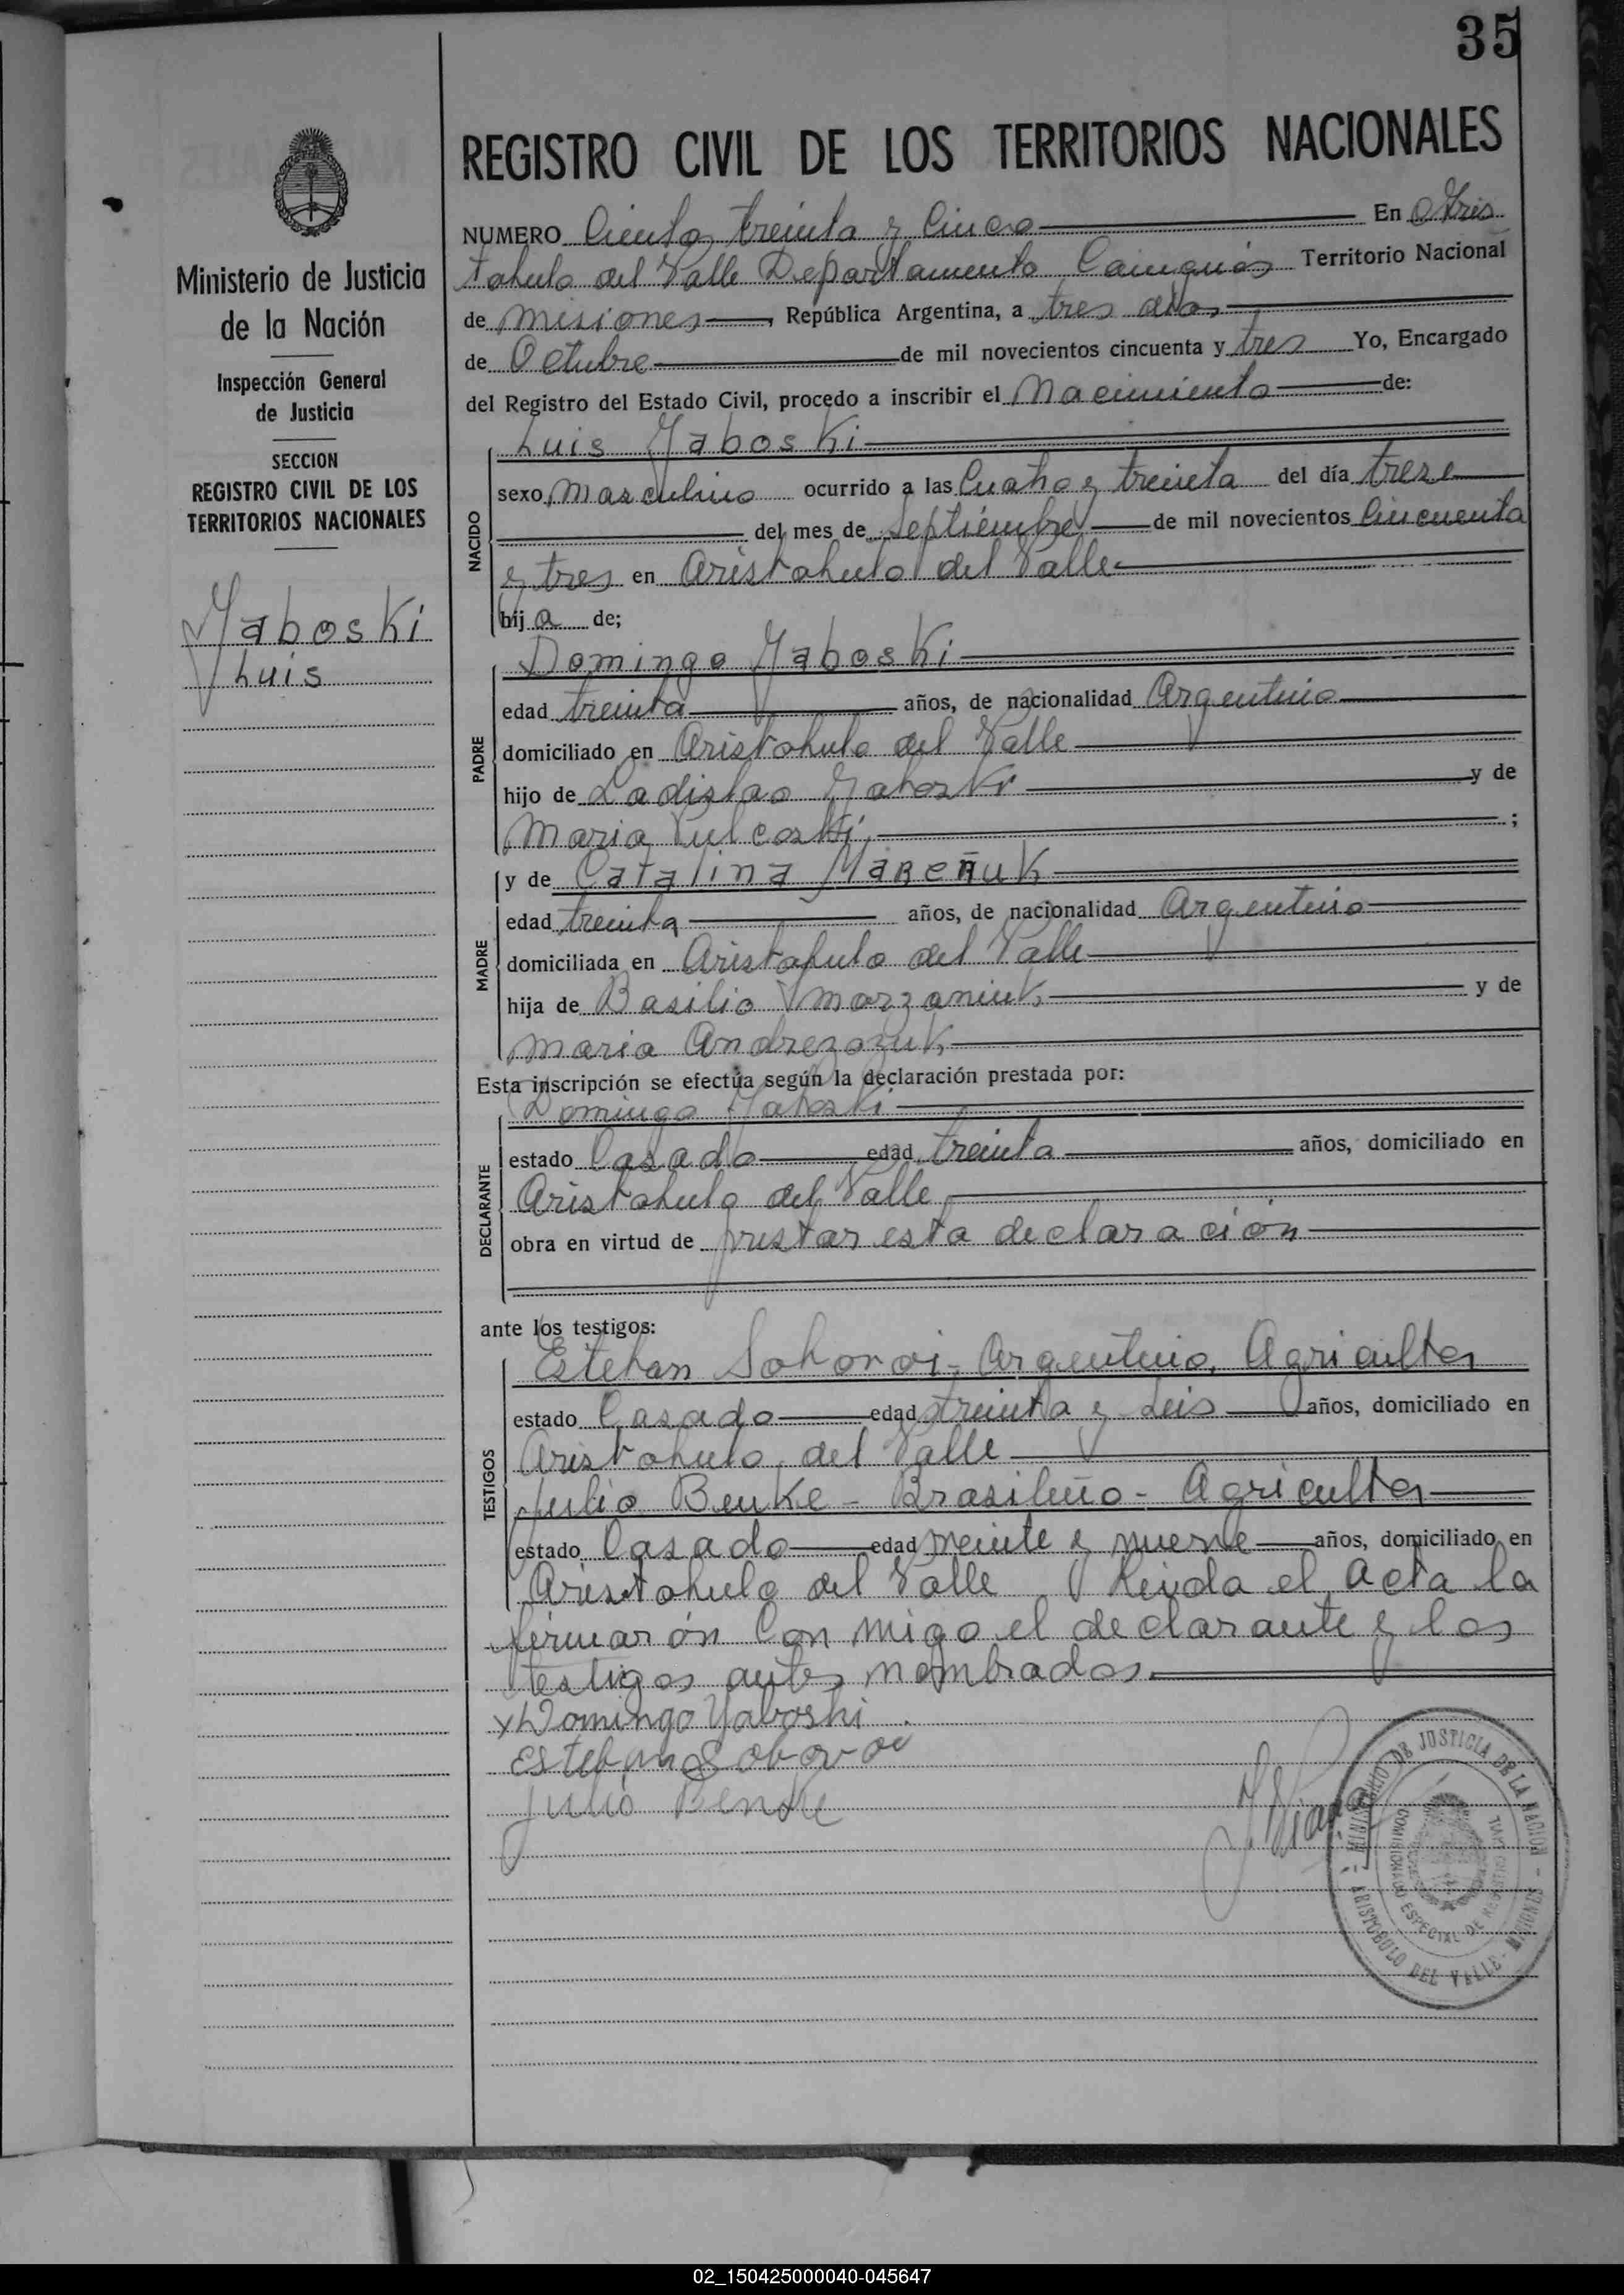 35
REGISTRO CIVIL DE LOS TERRITORIOS NACIONALES
Ministerio de Justicia
de la Nación
Inspección General
de Justicia
SECCION
REGISTRO CIVIL DE LOS
TERRITORIOS NACIONALES
Yaboski
Luis
NUMERO Ciento treinta y Cinco En Aris
tobulo del Valle Departamento Cainguás Territorio Nacional
de Misiones, República Argentina, a tres días
de Octubre de mil novecientos cincuenta y tres Yo, Encargado
del Registro del Estado Civil, procedo a inscribir el Nacimiento de:
NACIDO
Luis Yaboski
sexo Masculino ocurrido a las Cuatro y treinta del día treze
del mes de Septiembre de mil novecientos Cincuenta
y tres en Aristobulo del Valle
hij o de;
PADRE
Domingo Yaboski
edad treinta años, de nacionalidad Argentino
domiciliado en Aristobulo del Valle
hijo de Ladislao Yaboski y de
Maria ;
y de Catalina MaReñuk
MADRE
edad treinta años, de nacionalidad Argentino
domiciliada en Aristobulo del Valle
hija de Basilio Marzaniuk y de
Maria
Esta inscripción se efectúa según la declaración prestada por:
DECLARANTE
Domingo Yaboski
estado Casado edad treinta años, domiciliado en
Aristobulo del Valle
obra en virtud de prestar esta declaración
ante los testigos:
TESTIGOS
Esteban Argentino, Agricultor
estado Casado edad treinta y Seis años, domiciliado en
Aristobulo del Valle
Julio Benke - Brasileño - Agricultor
estado Casado edad veinte y nueve años, domiciliado en
Aristobulo del Valle leida el Acta la
firmarón Con migo el declarante y los
testigos antes nombrados.
x Domingo Yaboski
Esteban
Julio Benke
MINISTERIO DE JUSTICIA DE LA NACION
COMISIONADO ESPECIAL DE REGISTRO CIVIL
ARISTOBULO DEL VALLE - MISIONES
02_150425000040-045647